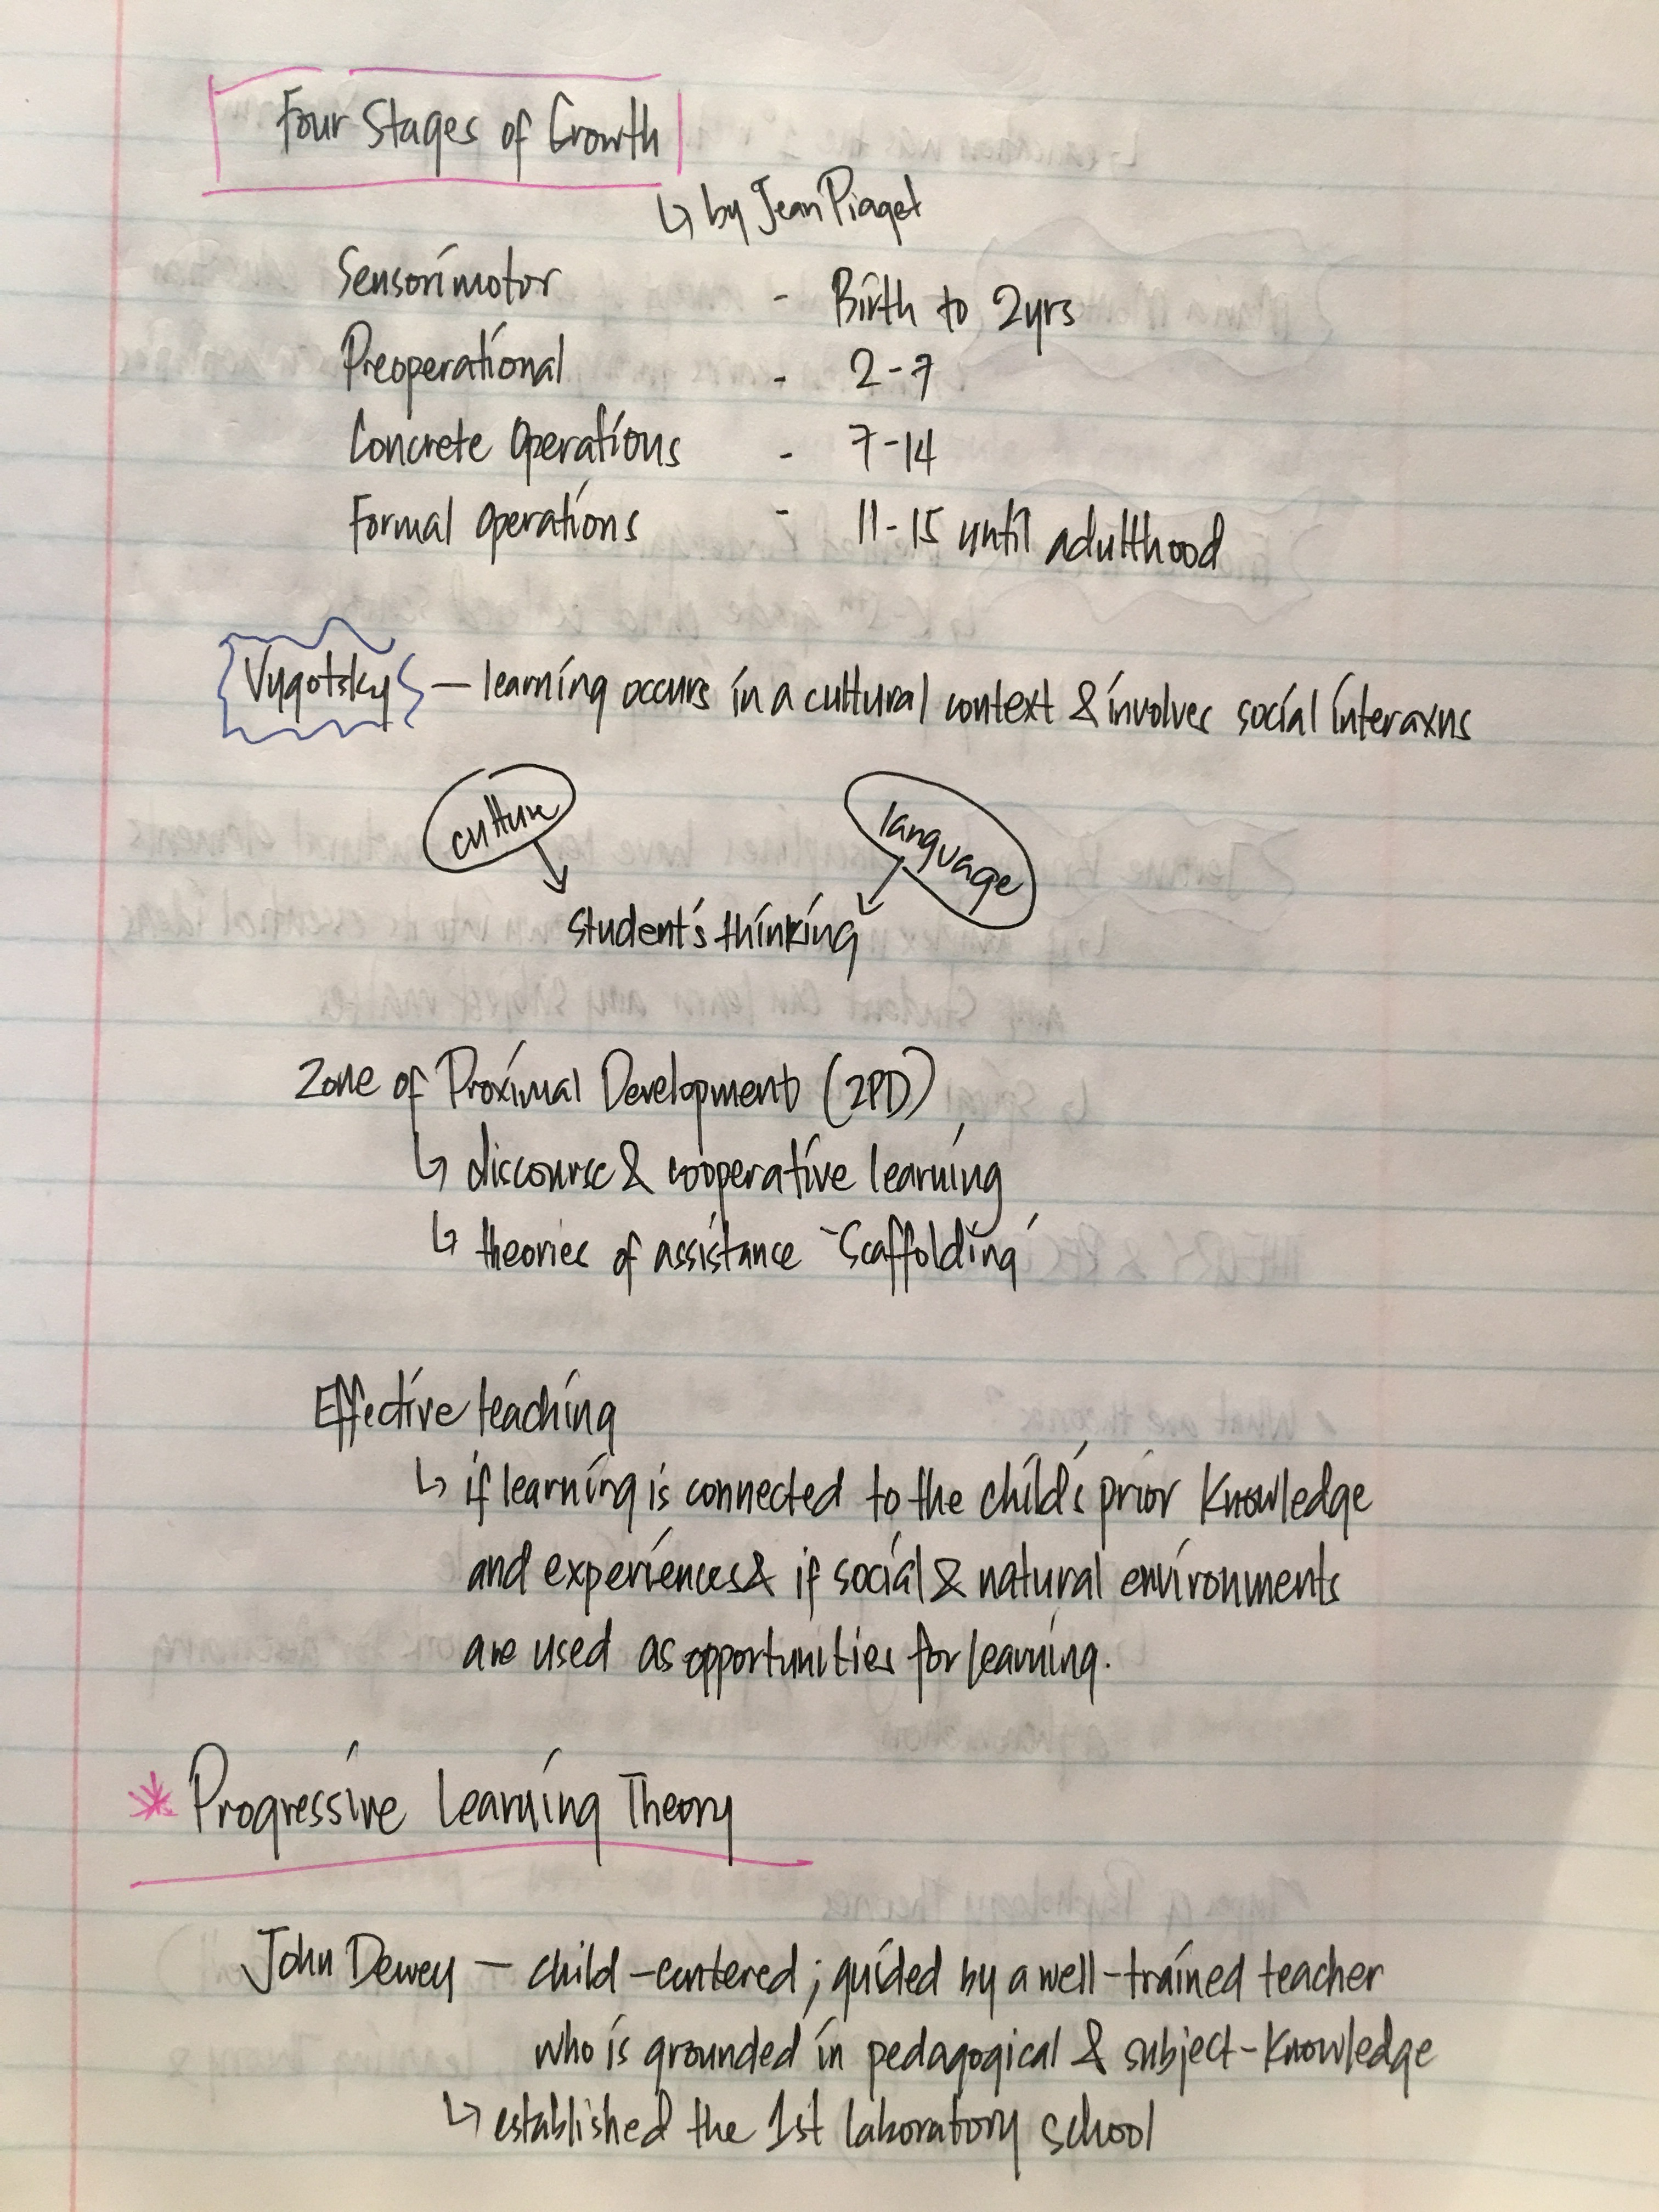 Four Stages of Growth
↳ by Jean Piaget
Sensorimotor - Birth to 2yrs
Preoperational - 2-7
Concrete Operations - 7-14
Formal Operations - 11-15 until adulthood
Vygotsky — learning occurs in a cultural context & involves social interaxns
culture language
student's thinking
Zone of Proximal Development (ZPD)
↳ discourse & cooperative learning
↳ theories of assistance "Scaffolding"
Effective teaching
↳ if learning is connected to the child's prior knowledge
and experiences & if social & natural environments
are used as opportunities for learning.
* Progressive Learning Theory
John Dewey — child-centered; guided by a well-trained teacher
who is grounded in pedagogical & subject-knowledge
↳ established the 1st laboratory school